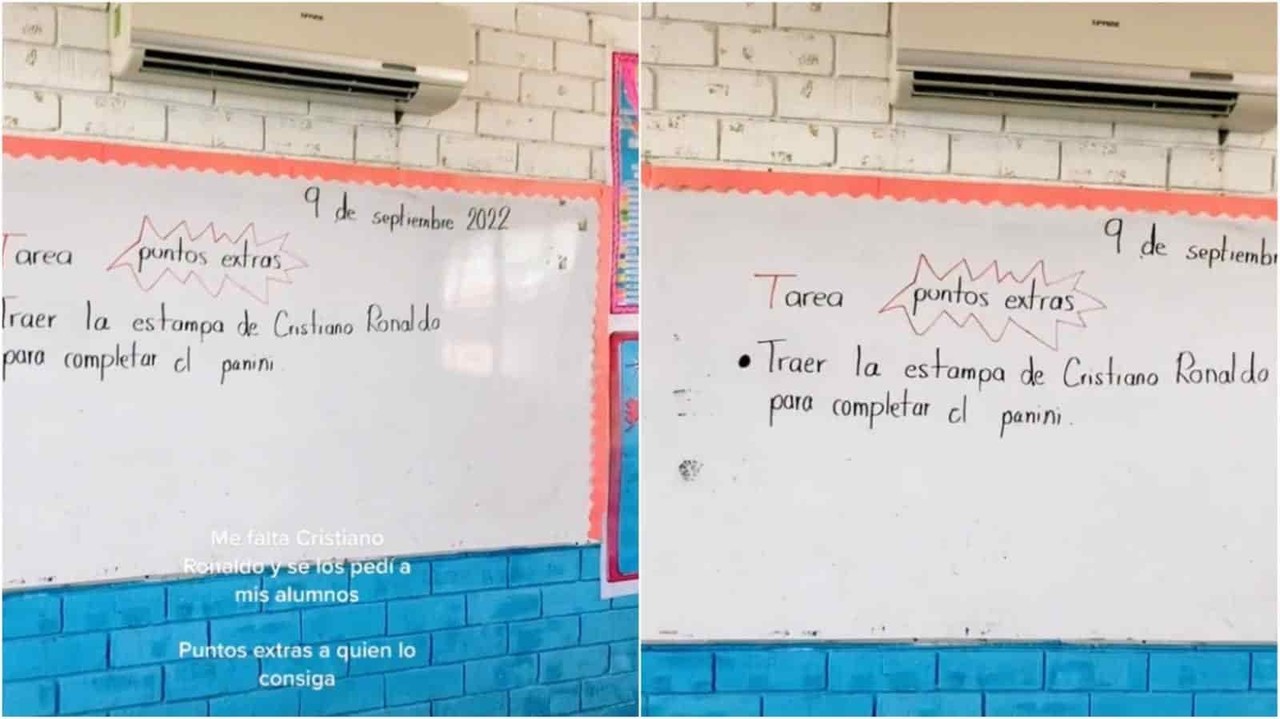 9 de septiembre 2022
Tarea puntos extras
Traer la estampa de Cristiano Ronaldo
para completar el panini.
Me falta Cristiano
Ronaldo y se los pedí a
mis alumnos
Puntos extras a quien lo
consiga
9 de septiembr
Tarea puntos extras
• Traer la estampa de Cristiano Ronaldo
para completar el panini.